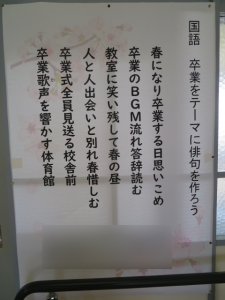 国語　卒業をテーマに俳句を作ろう
春になり卒業する日思いこめ
卒業のBGM流れ答辞読む
教室に笑い残して春の昼
人と人出会いと別れ春惜しむ
卒業式全員見送る校舎前
卒業歌声を響かす体育館